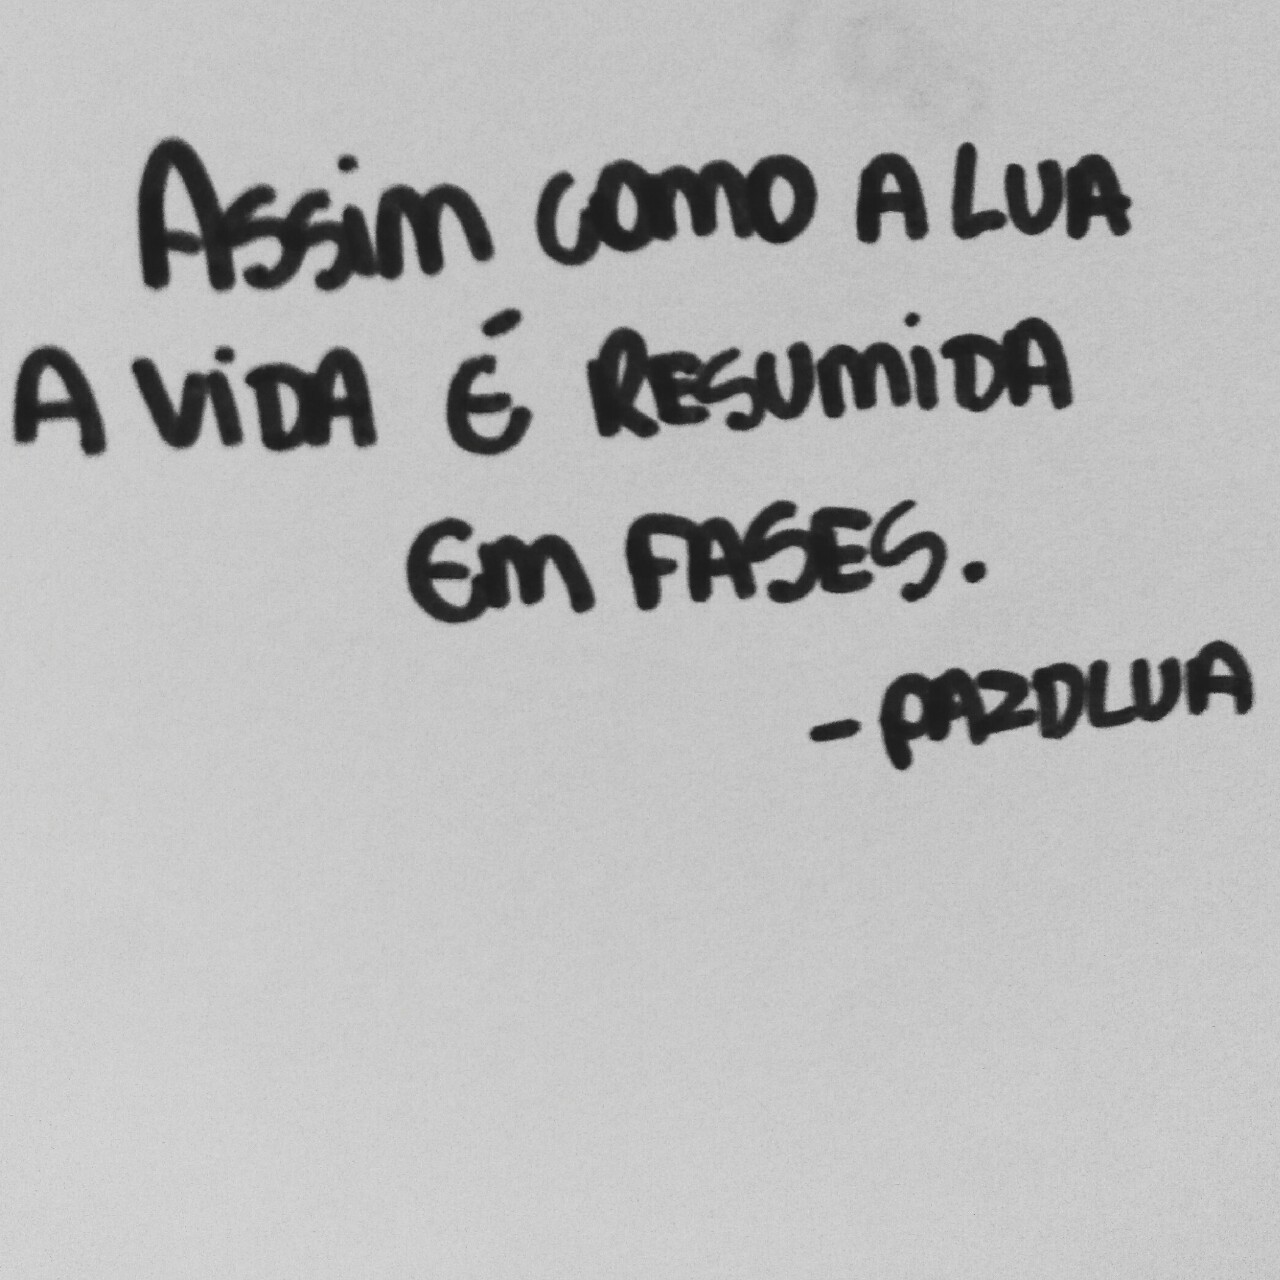 Assim como A LUA
A ViDA É RESUMiDA
Em FASES.
- PAZDLUA